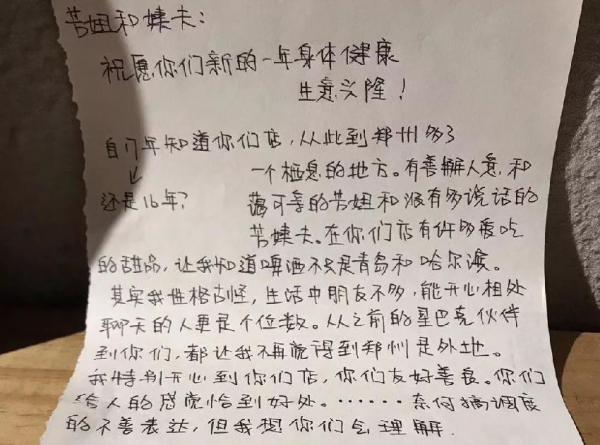 苦妞和姨夫：
祝愿你们新的一年身体健康
生意兴隆！
自17年知道你们店，从此到郑州多了
还是16年？
一个栖息的地方。有善解人意、和
蔼可亲的苦妞和没有多说话的
苦姨夫。在你们店有许多爱吃
的甜品，让我知道啤酒不只是青岛和哈尔滨。
其实我性格古怪，生活中朋友不多，能开心相处
聊天的人更是个位数。从之前的星巴克伙伴
到你们，都让我不再觉得到郑州是外地。
我特别开心到你们店，你们友好善良。你们
给人的感觉恰到好处。……奈何摘调度
的不善表达，但我想你们会理解